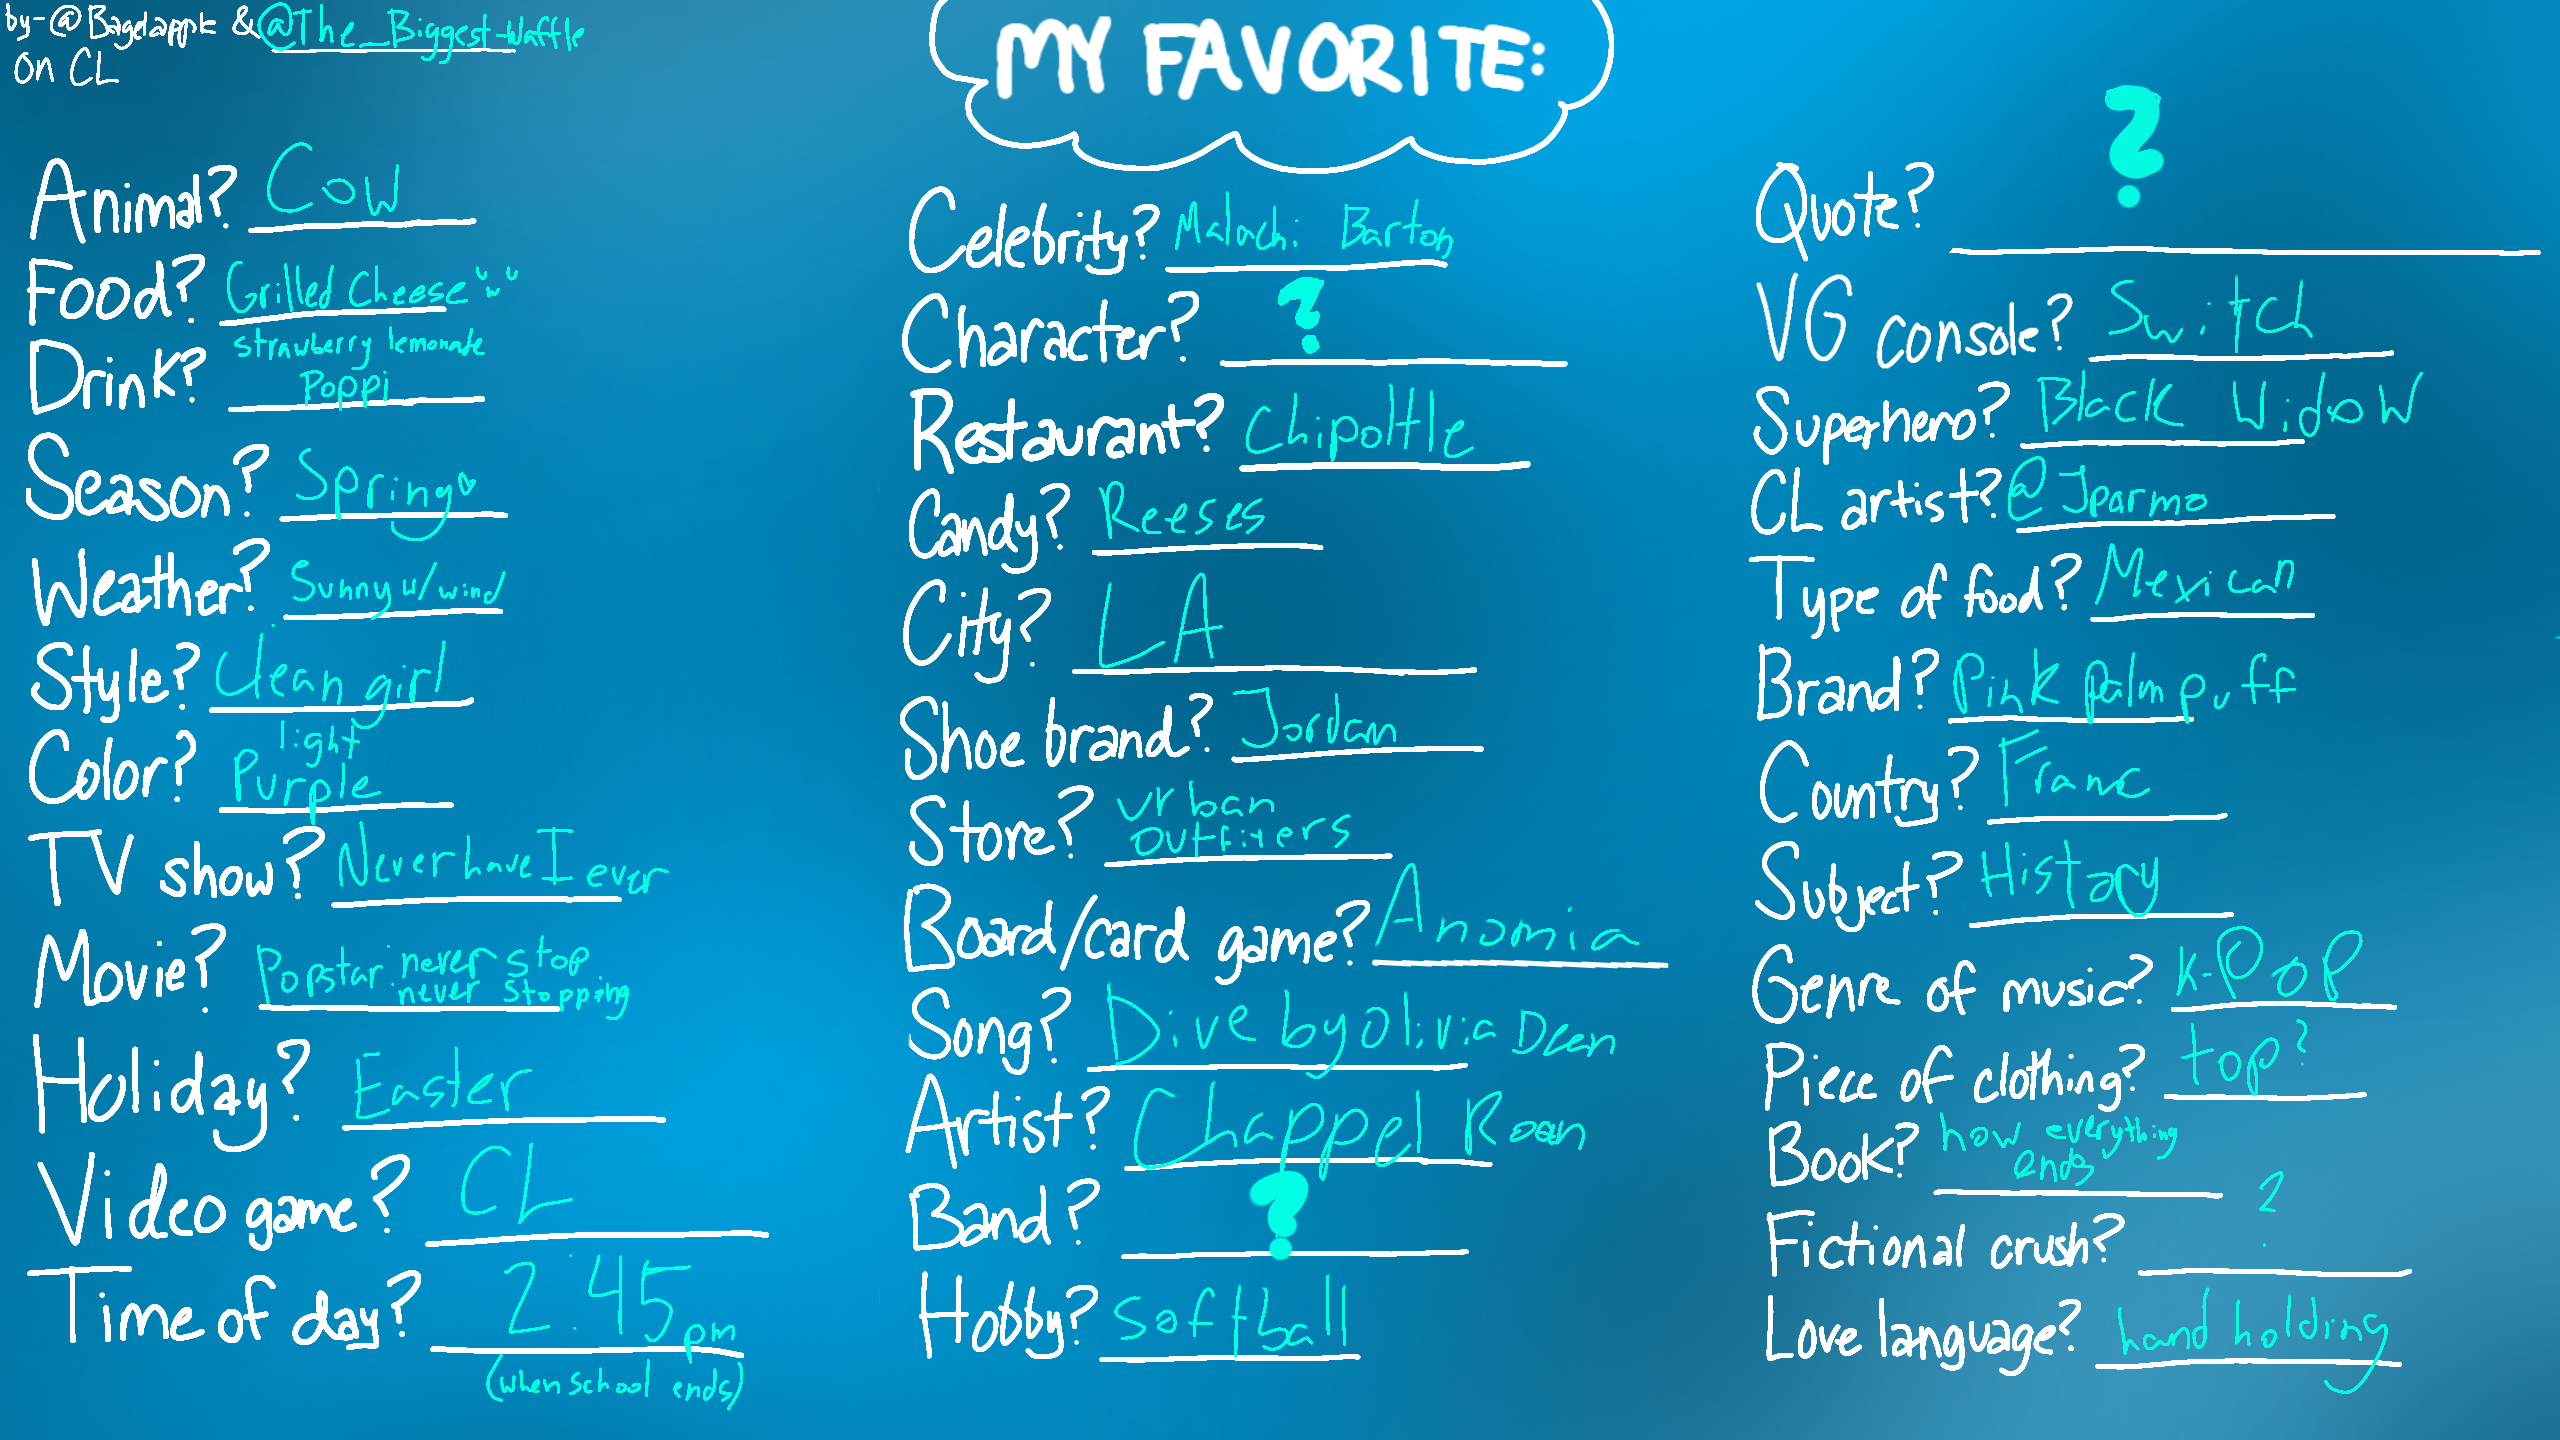 by-@Bagelappk & @The_Biggest-Waffle
on CL
MY FAVORITE:
Animal? Cow
Food? Grilled Cheese
Drink? strawberry lemonade
Poppi
Season? Spring
Weather? Sunny w/wind
Style? Clean girl
Color? light
Purple
TV show? Never have I ever
Movie? Popstar: never stop
never stopping
Holiday? Easter
Video game? CL
Time of day? 2:45 pm
(when school ends)
Celebrity? Malachi Barton
Character? ?
Restaurant? Chipoltle
Candy? Reeses
City? LA
Shoe brand? Jordan
Store? urban
outfiters
Board/card game? Anomia
Song? Dive by Olivia Dean
Artist? Chappel Roan
Band? ?
Hobby? Softball
Quote? ?
VG console? Switch
Superhero? Black Widow
CL artist? @Jparmo
Type of food? Mexican
Brand? Pink palm puff
Country? Franc
Subject? History
Genre of music? K-POP
Piece of clothing? top?
Book? how everything
ends
Fictional crush? ?
Love language? hand holding